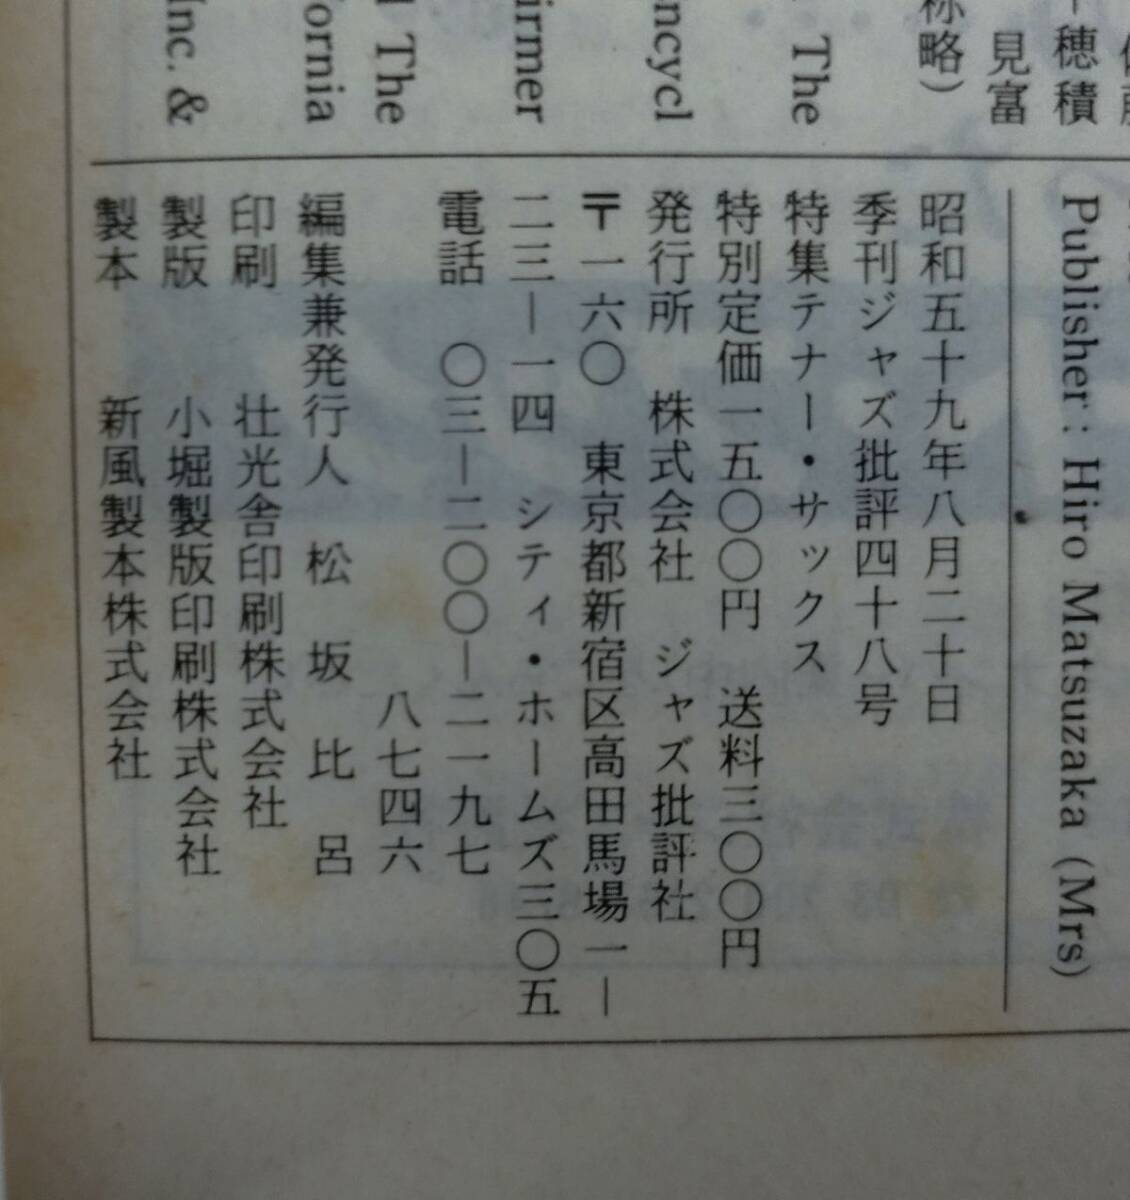 穂積
見富
称略)
The
ncycl
irmer
The
ornia
Inc. &
Publisher: Hiro Matsuzaka (Mrs)
昭和五十九年八月二十日
季刊ジャズ批評四十八号
特集テナー・サックス
特別定価一五〇〇円 送料三〇〇円
発行所 株式会社 ジャズ批評社
〒一六〇 東京都新宿区高田馬場一ー
二三ー一四 シティ・ホームズ三〇五
電話 〇三ー二〇〇ー二一九七
八七四六
編集兼発行人 松坂比呂
印刷 壮光舎印刷株式会社
製版 小堀製版印刷株式会社
製本 新風製本株式会社